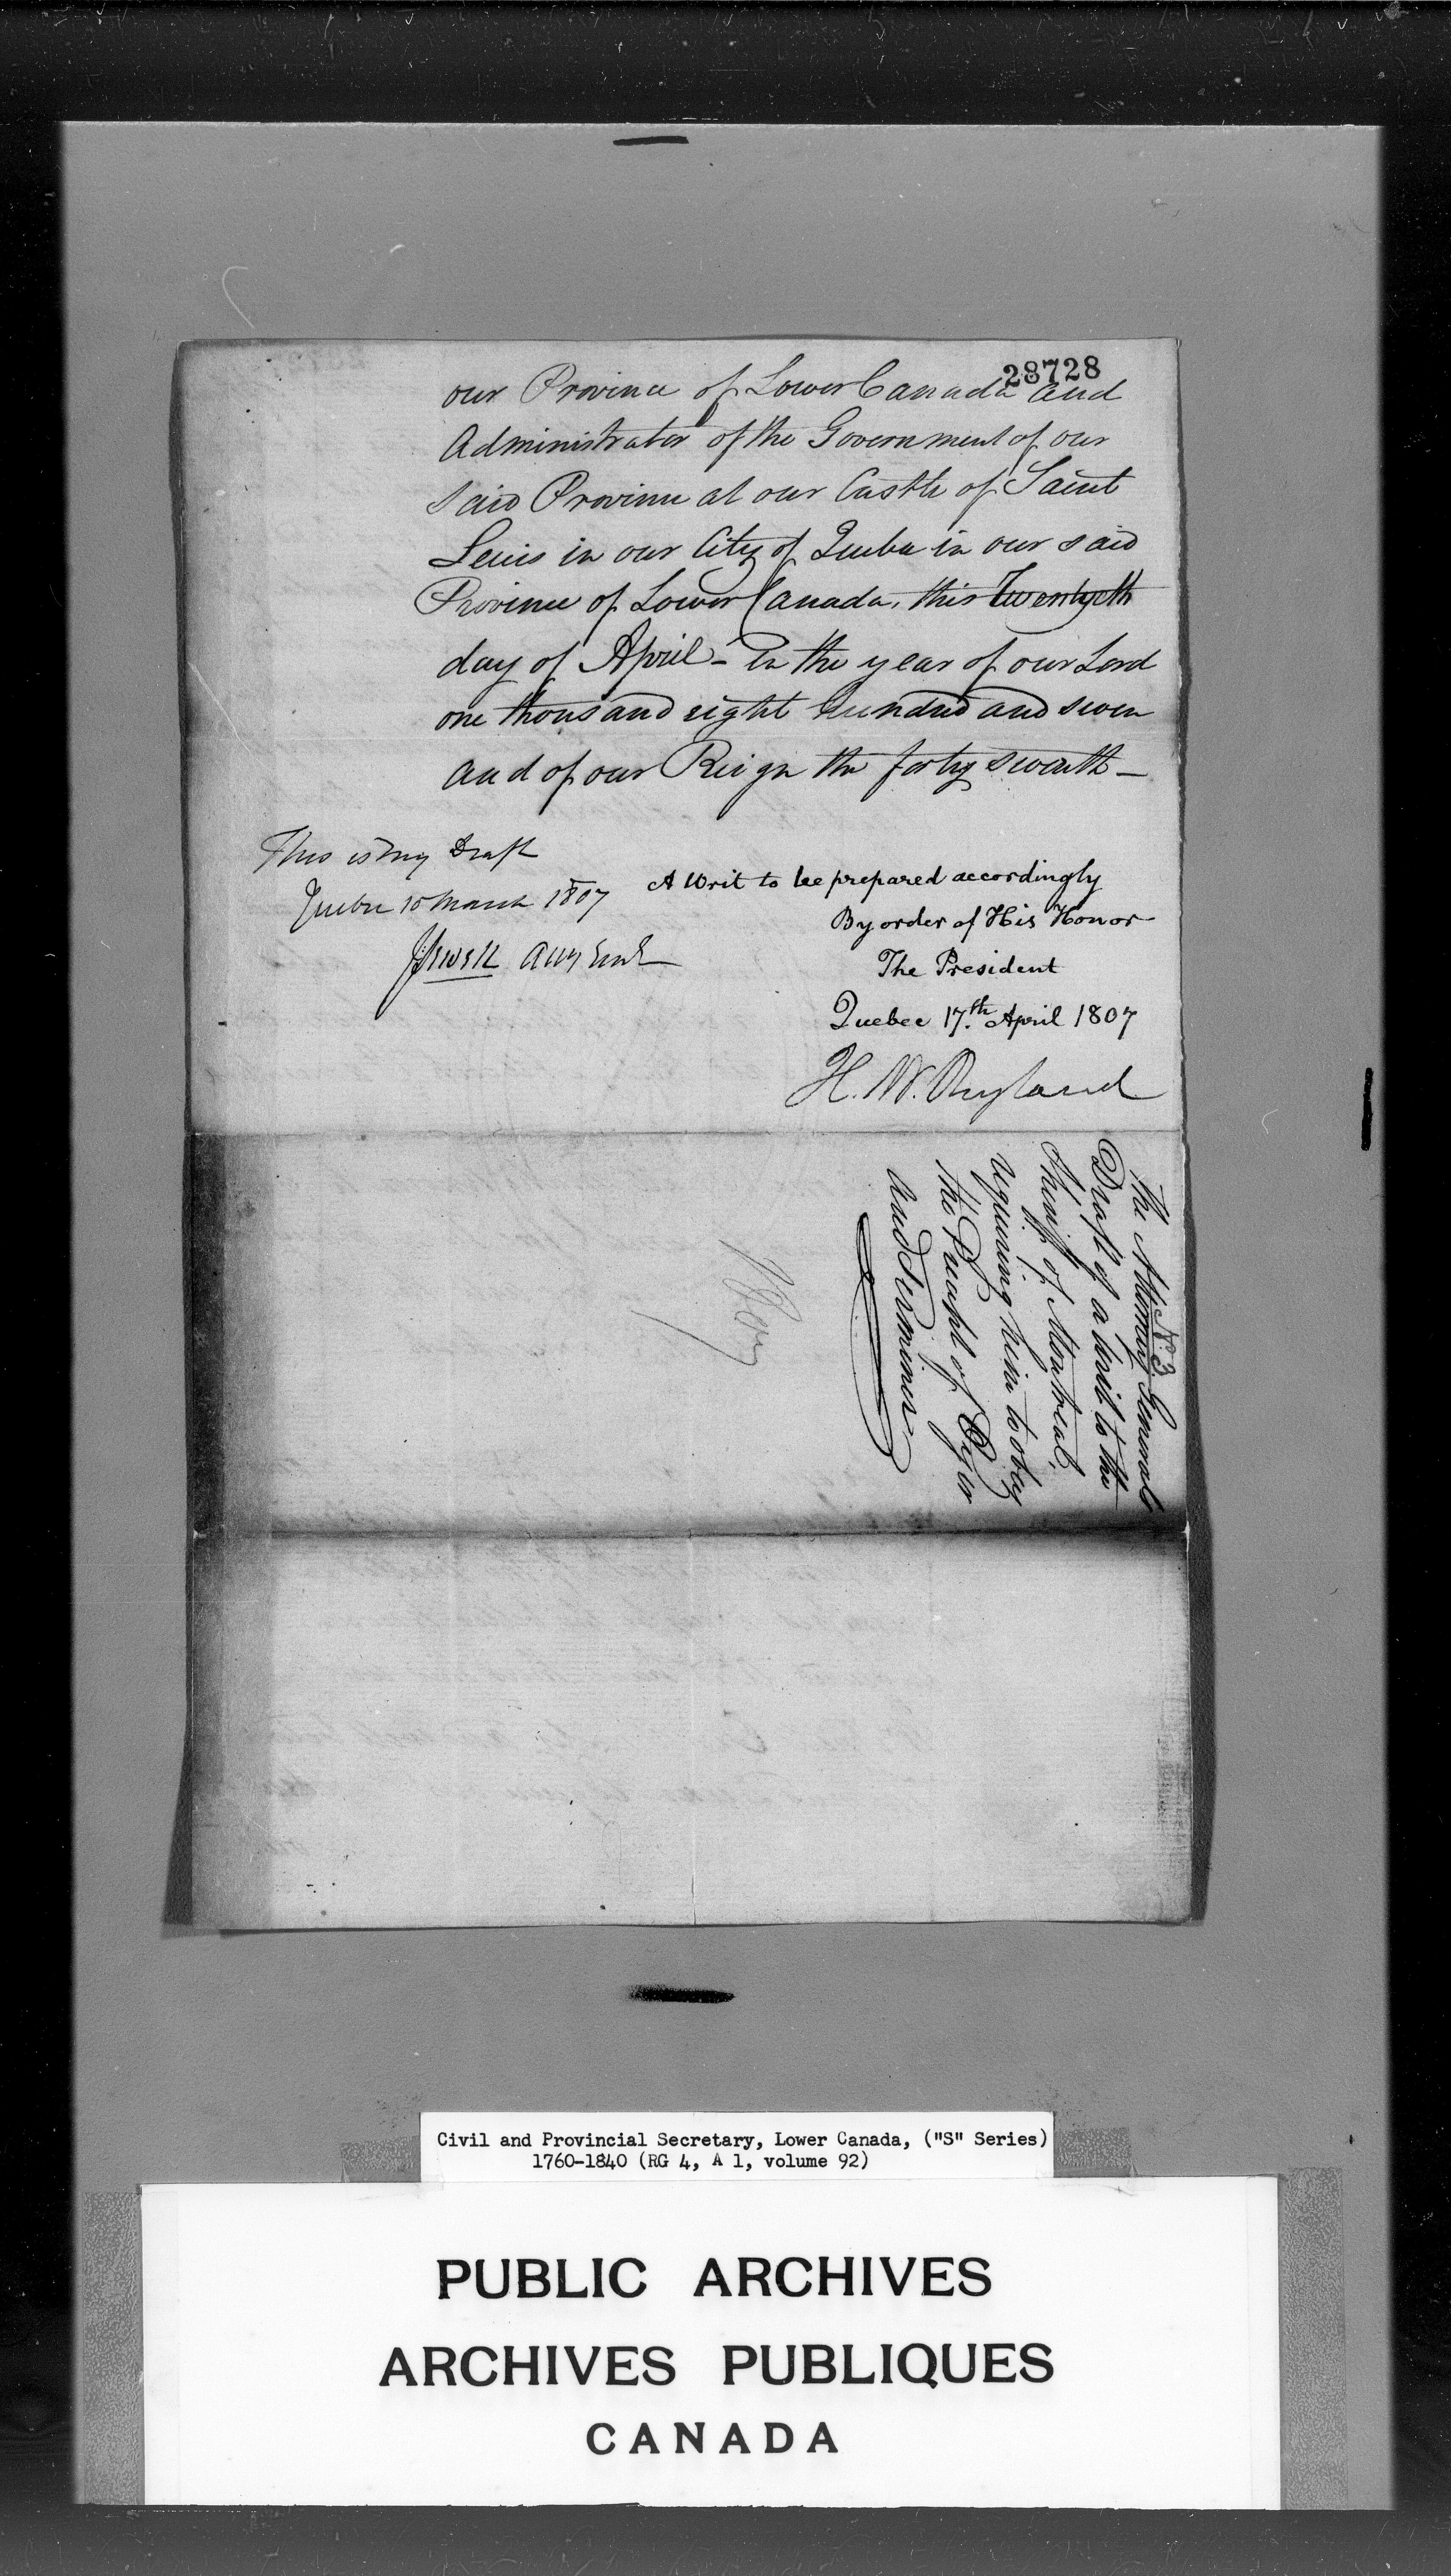 28728
our Province of Lower Canada and
Administrator of the Government of our
said Province at our Castle of Saint
Lewis in our City of Quebec in our said
Province of Lower Canada, this Twentyeth
day of April - In the year of our Lord
one thousand eight hundred and seven
and of our Reign the forty seventh -
This is my Draft
Quebec 10 March 1807
J Sewell Atty Genl
A Writ to be prepared accordingly
By order of His Honor
The President
Quebec 17.th April 1807
H. W. Ryland
No. 3
The Attorney General
Draft of a Writ to the
Sheriff of Montreal
requiring him to obey
the Precept of Oyer
and Terminer
Civil and Provincial Secretary, Lower Canada, ("S" Series)
1760-1840 (RG 4, A 1, volume 92)
PUBLIC ARCHIVES
ARCHIVES PUBLIQUES
CANADA